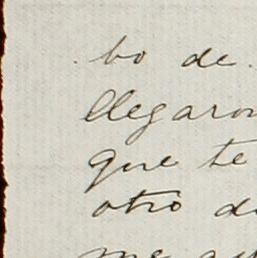 bo de
llegaron
que te
otro d
me